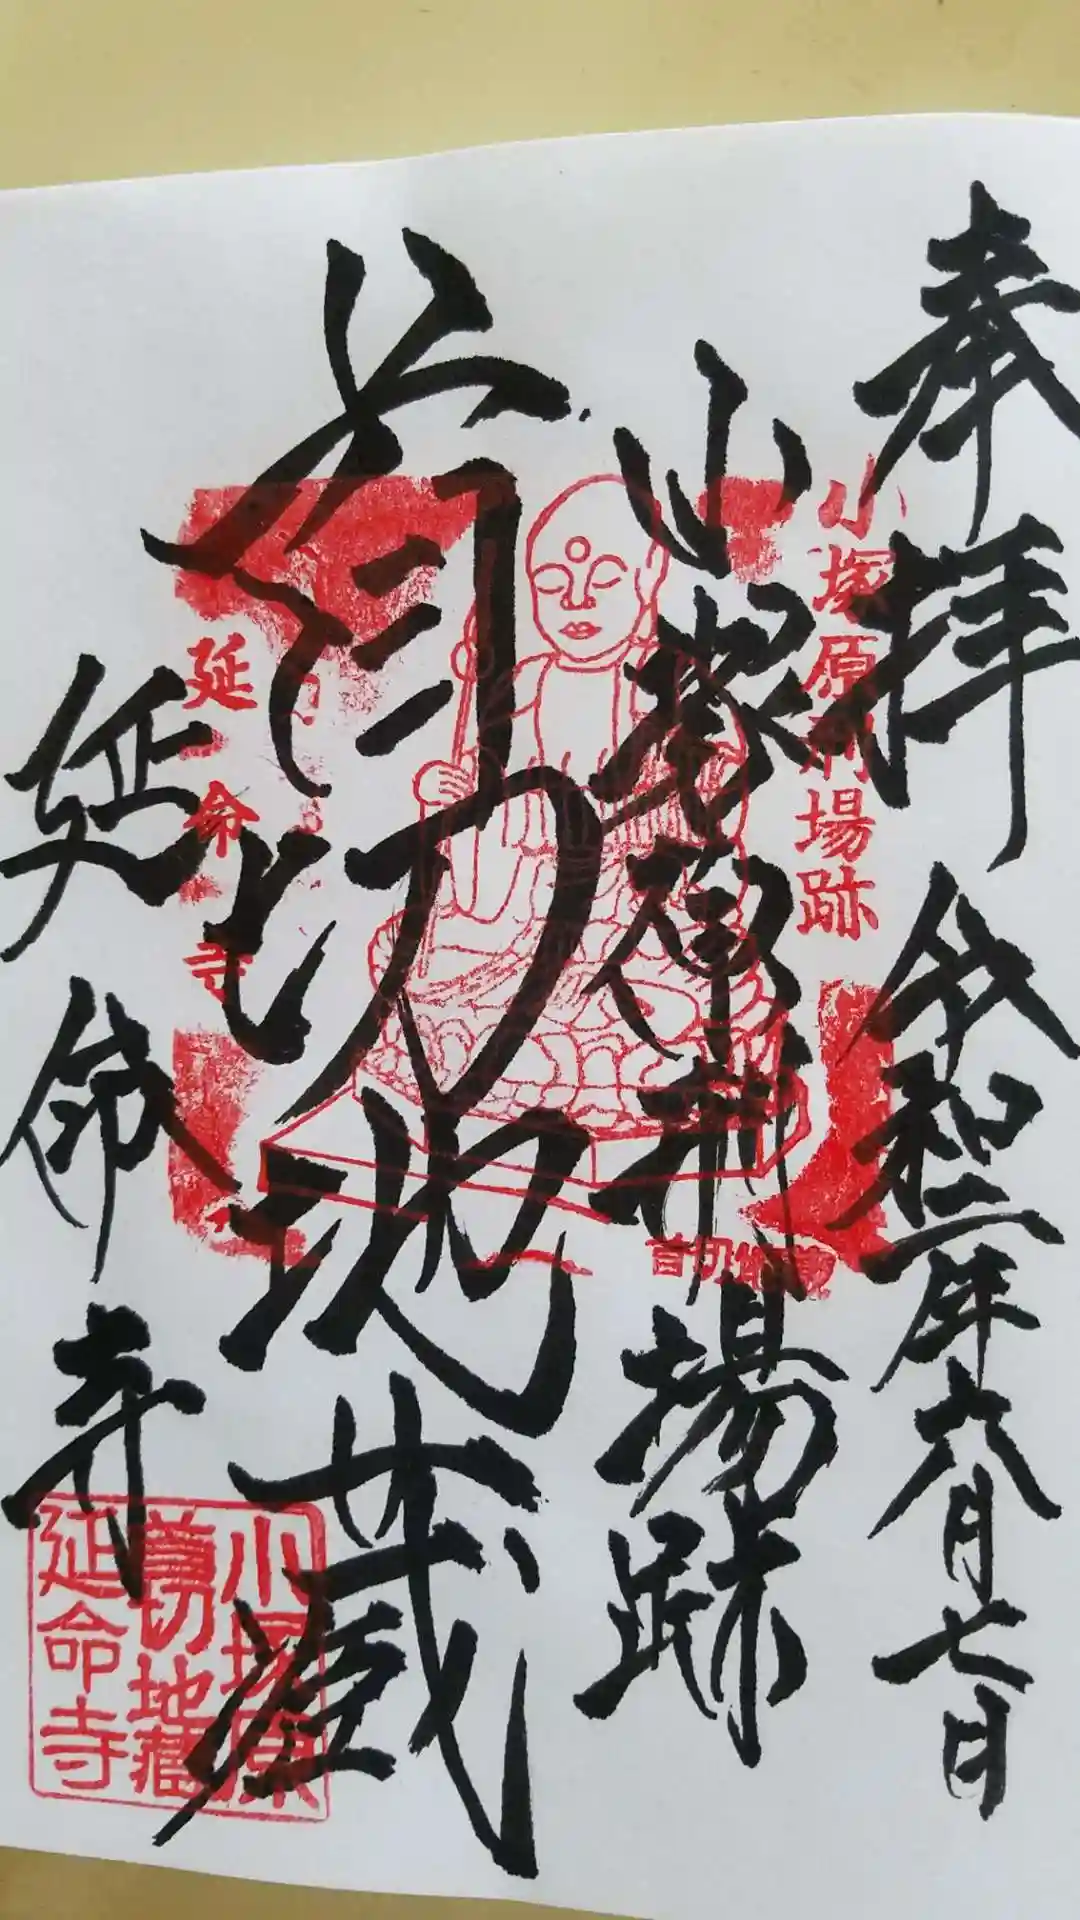 奉拝 令和二年六月七日
小塚原刑場跡
首切地蔵
延命寺
小塚原刑場跡
延命寺
首切地蔵
小塚原
首切地蔵
延命寺